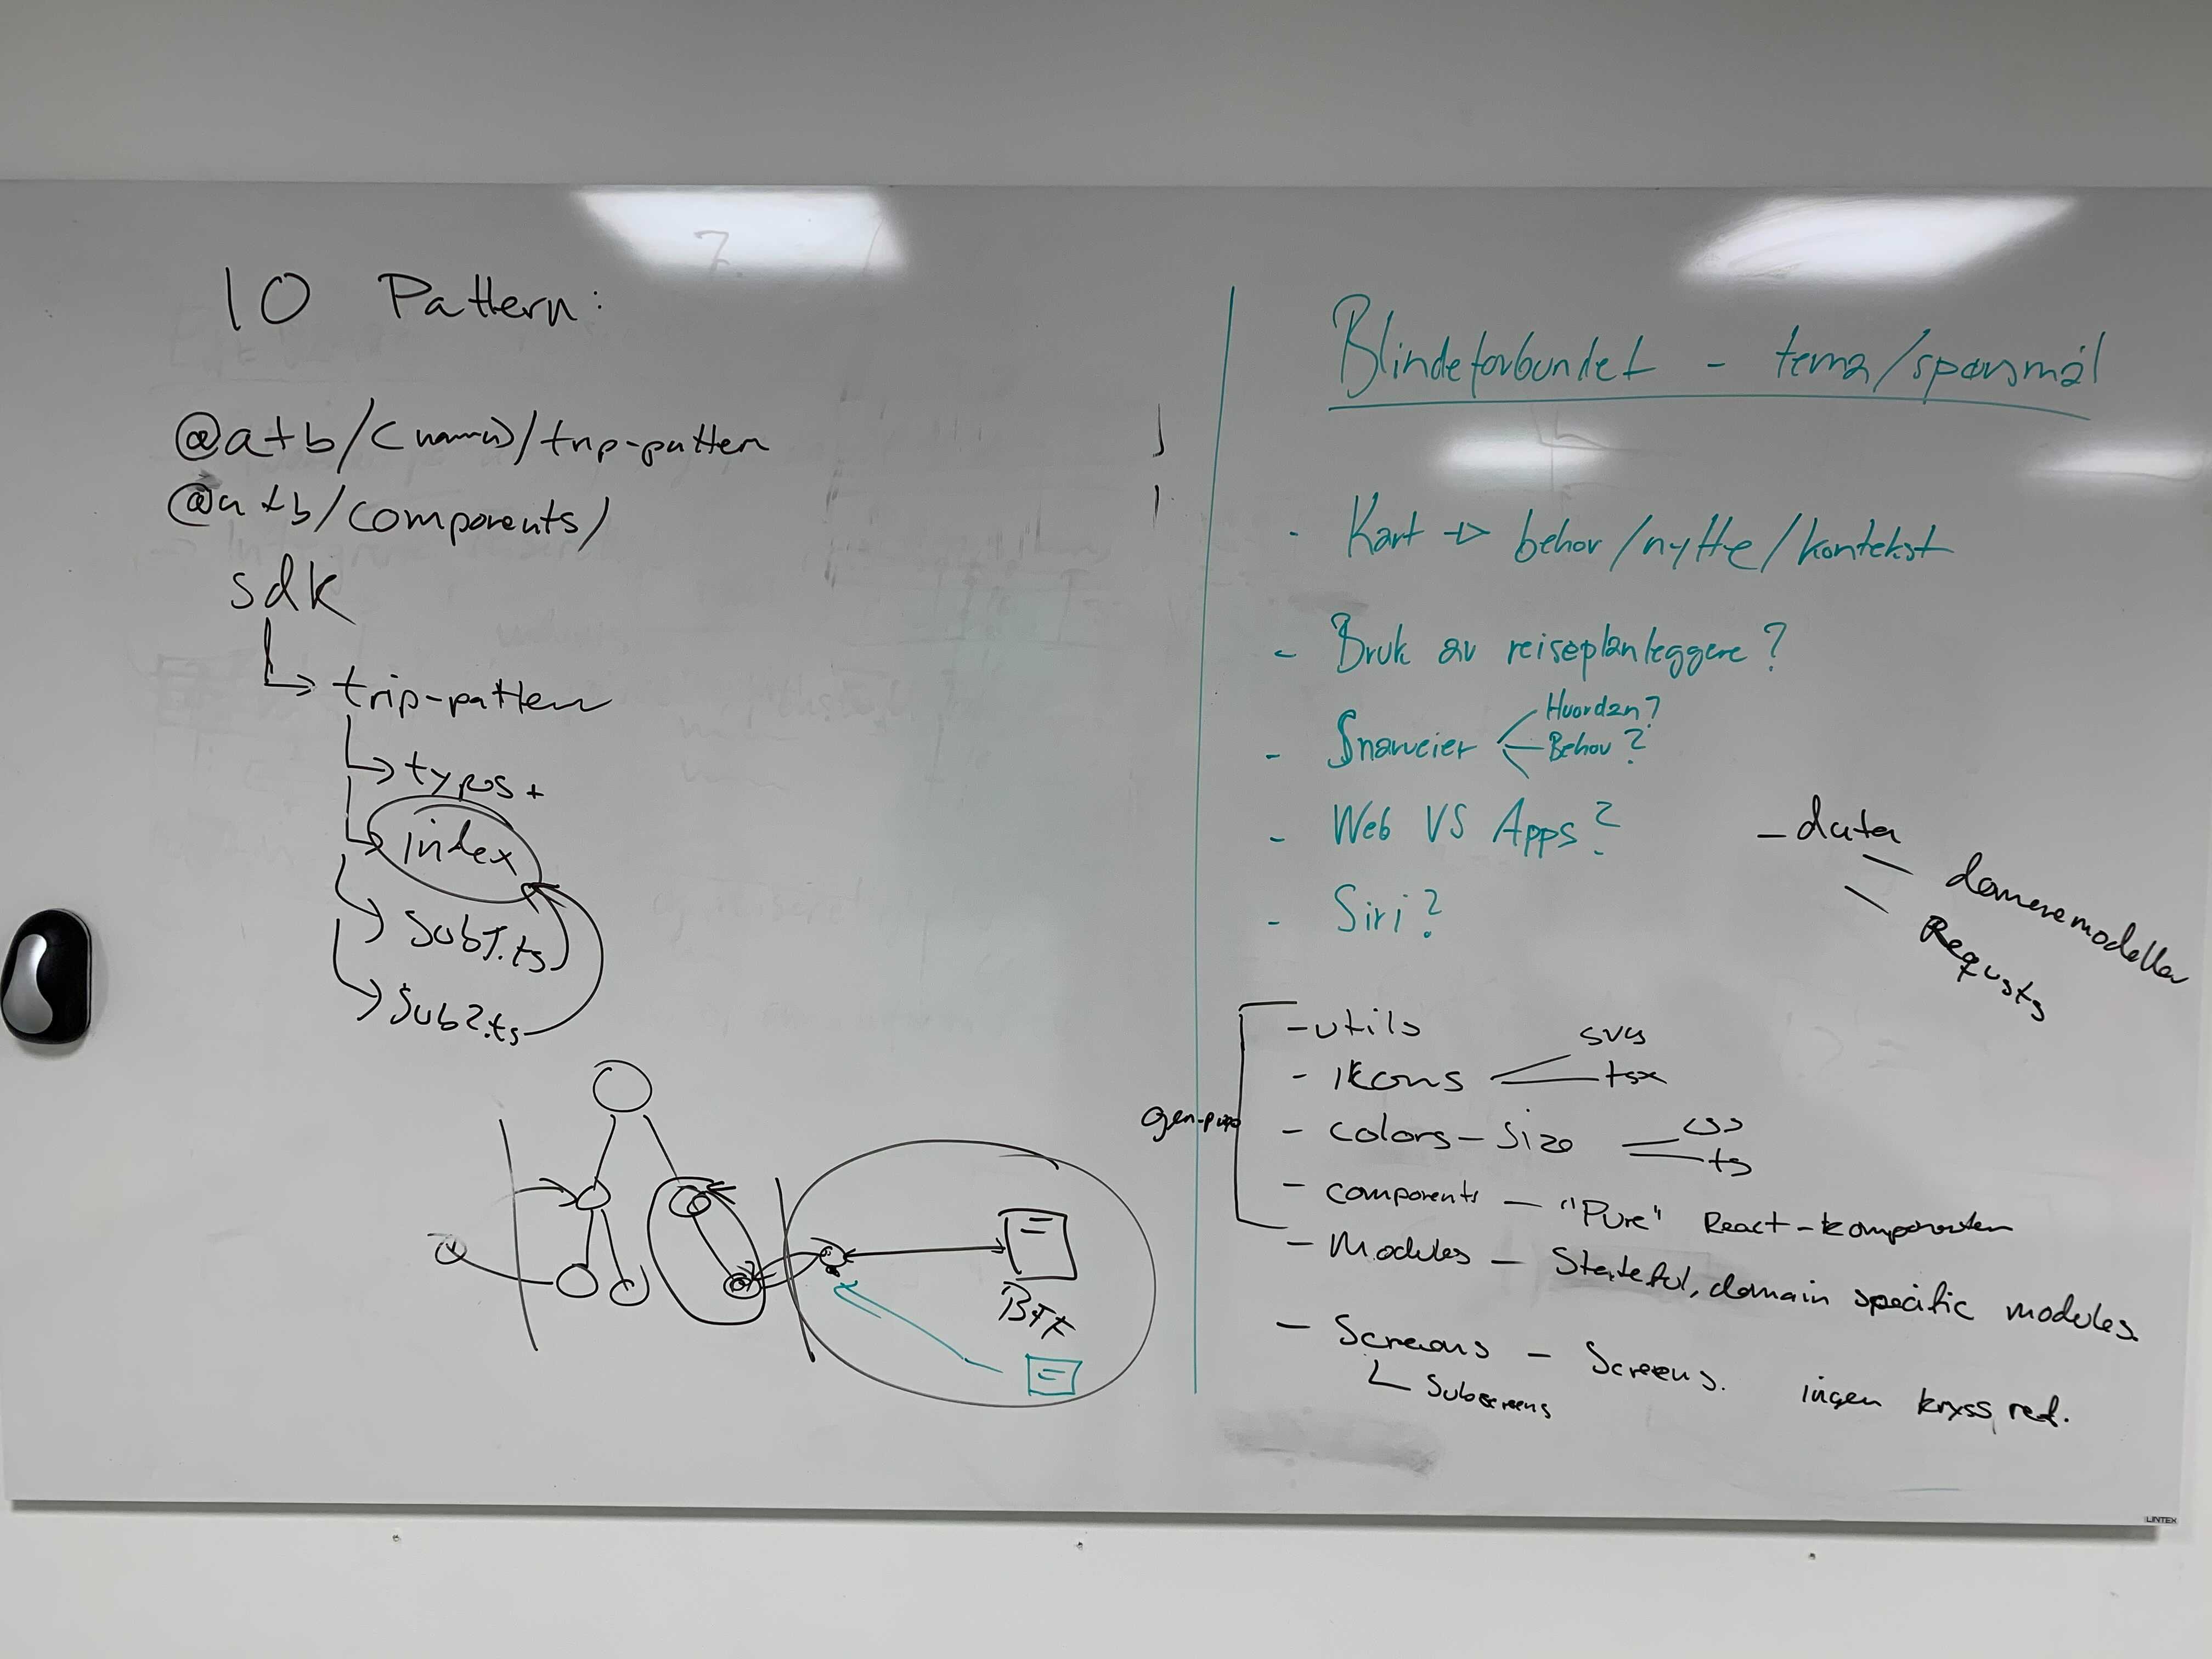 10 Pattern:
@atb/(name)/trip-pattern
@atb/components/
sdk
trip-pattern
types +
index
Sub1.ts
Sub2.ts
BFF
Blindeforbundet - tema/spørsmål
- Kart → behov/nytte/kontekst
- Bruk av reiseplanleggere?
- Snarveier
Hvordan?
Behov?
- Web VS Apps?
- Siri?
- data
domenemodeller
Requsts
- utils
- ikons
svg
tsx
- colors - Size
css
ts
- components - "Pure" React-komponenter
- Modules - Stateful, domain specific modules.
- Screens - Screens. ingen kryss ref.
Subscreens
LINTEX